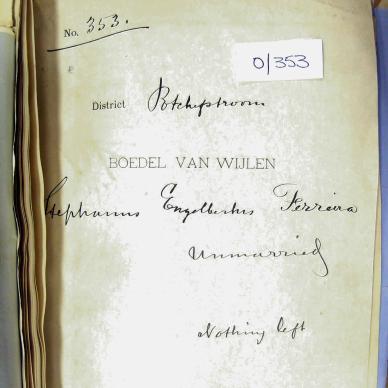 No. 353.
0/353
District Potchefstroom
BOEDEL VAN WIJLEN
Stephanus Engelbertus Ferreira
Unmarried
Nothing left